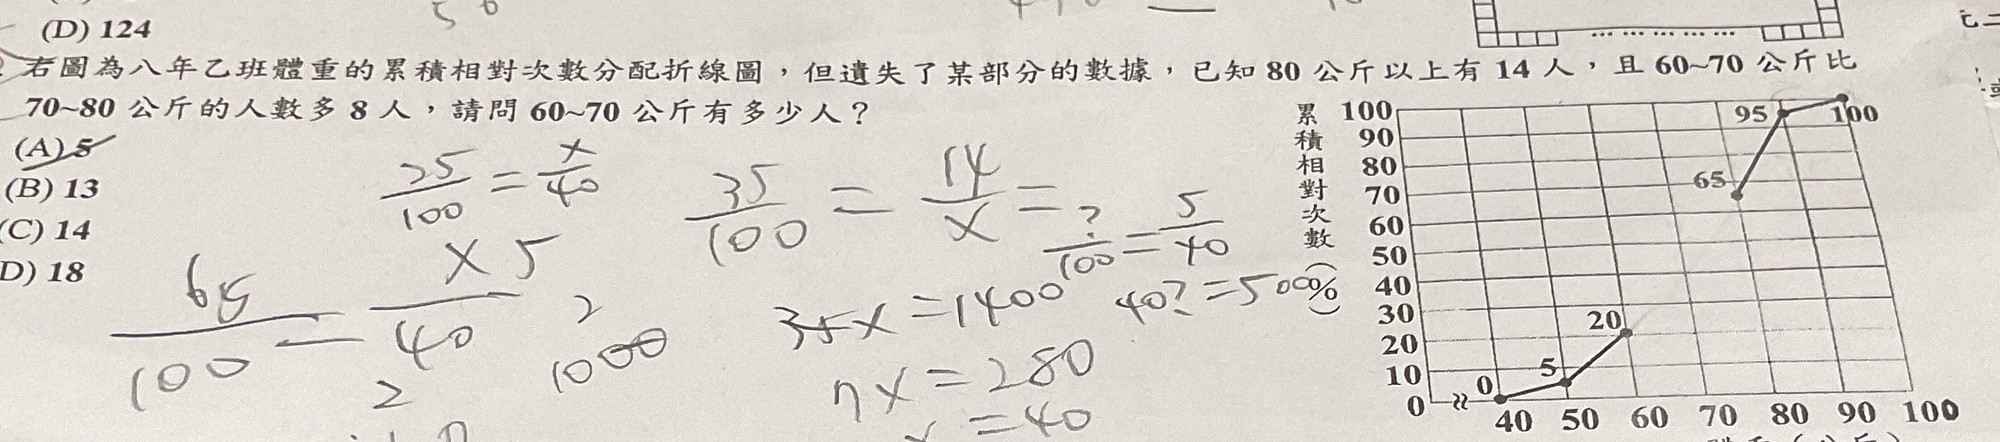 (D) 124
右圖為八年乙班體重的累積相對次數分配折線圖，但遺失了某部分的數據，已知 80 公斤以上有 14 人，且 60~70 公斤比
70~80 公斤的人數多 8 人，請問 60~70 公斤有多少人？
(A) 5
(B) 13
(C) 14
D) 18
25/100 = x/40
35/100 = 14/x =
?/100 = 5/40
65/100 = x5/40
35x = 1400
40? = 500
7x = 280
x = 40
2
1000
2
累積相對次數(%)
100
90
80
70
60
50
40
30
20
10
0
0
5
20
65
95
100
40 50 60 70 80 90 100